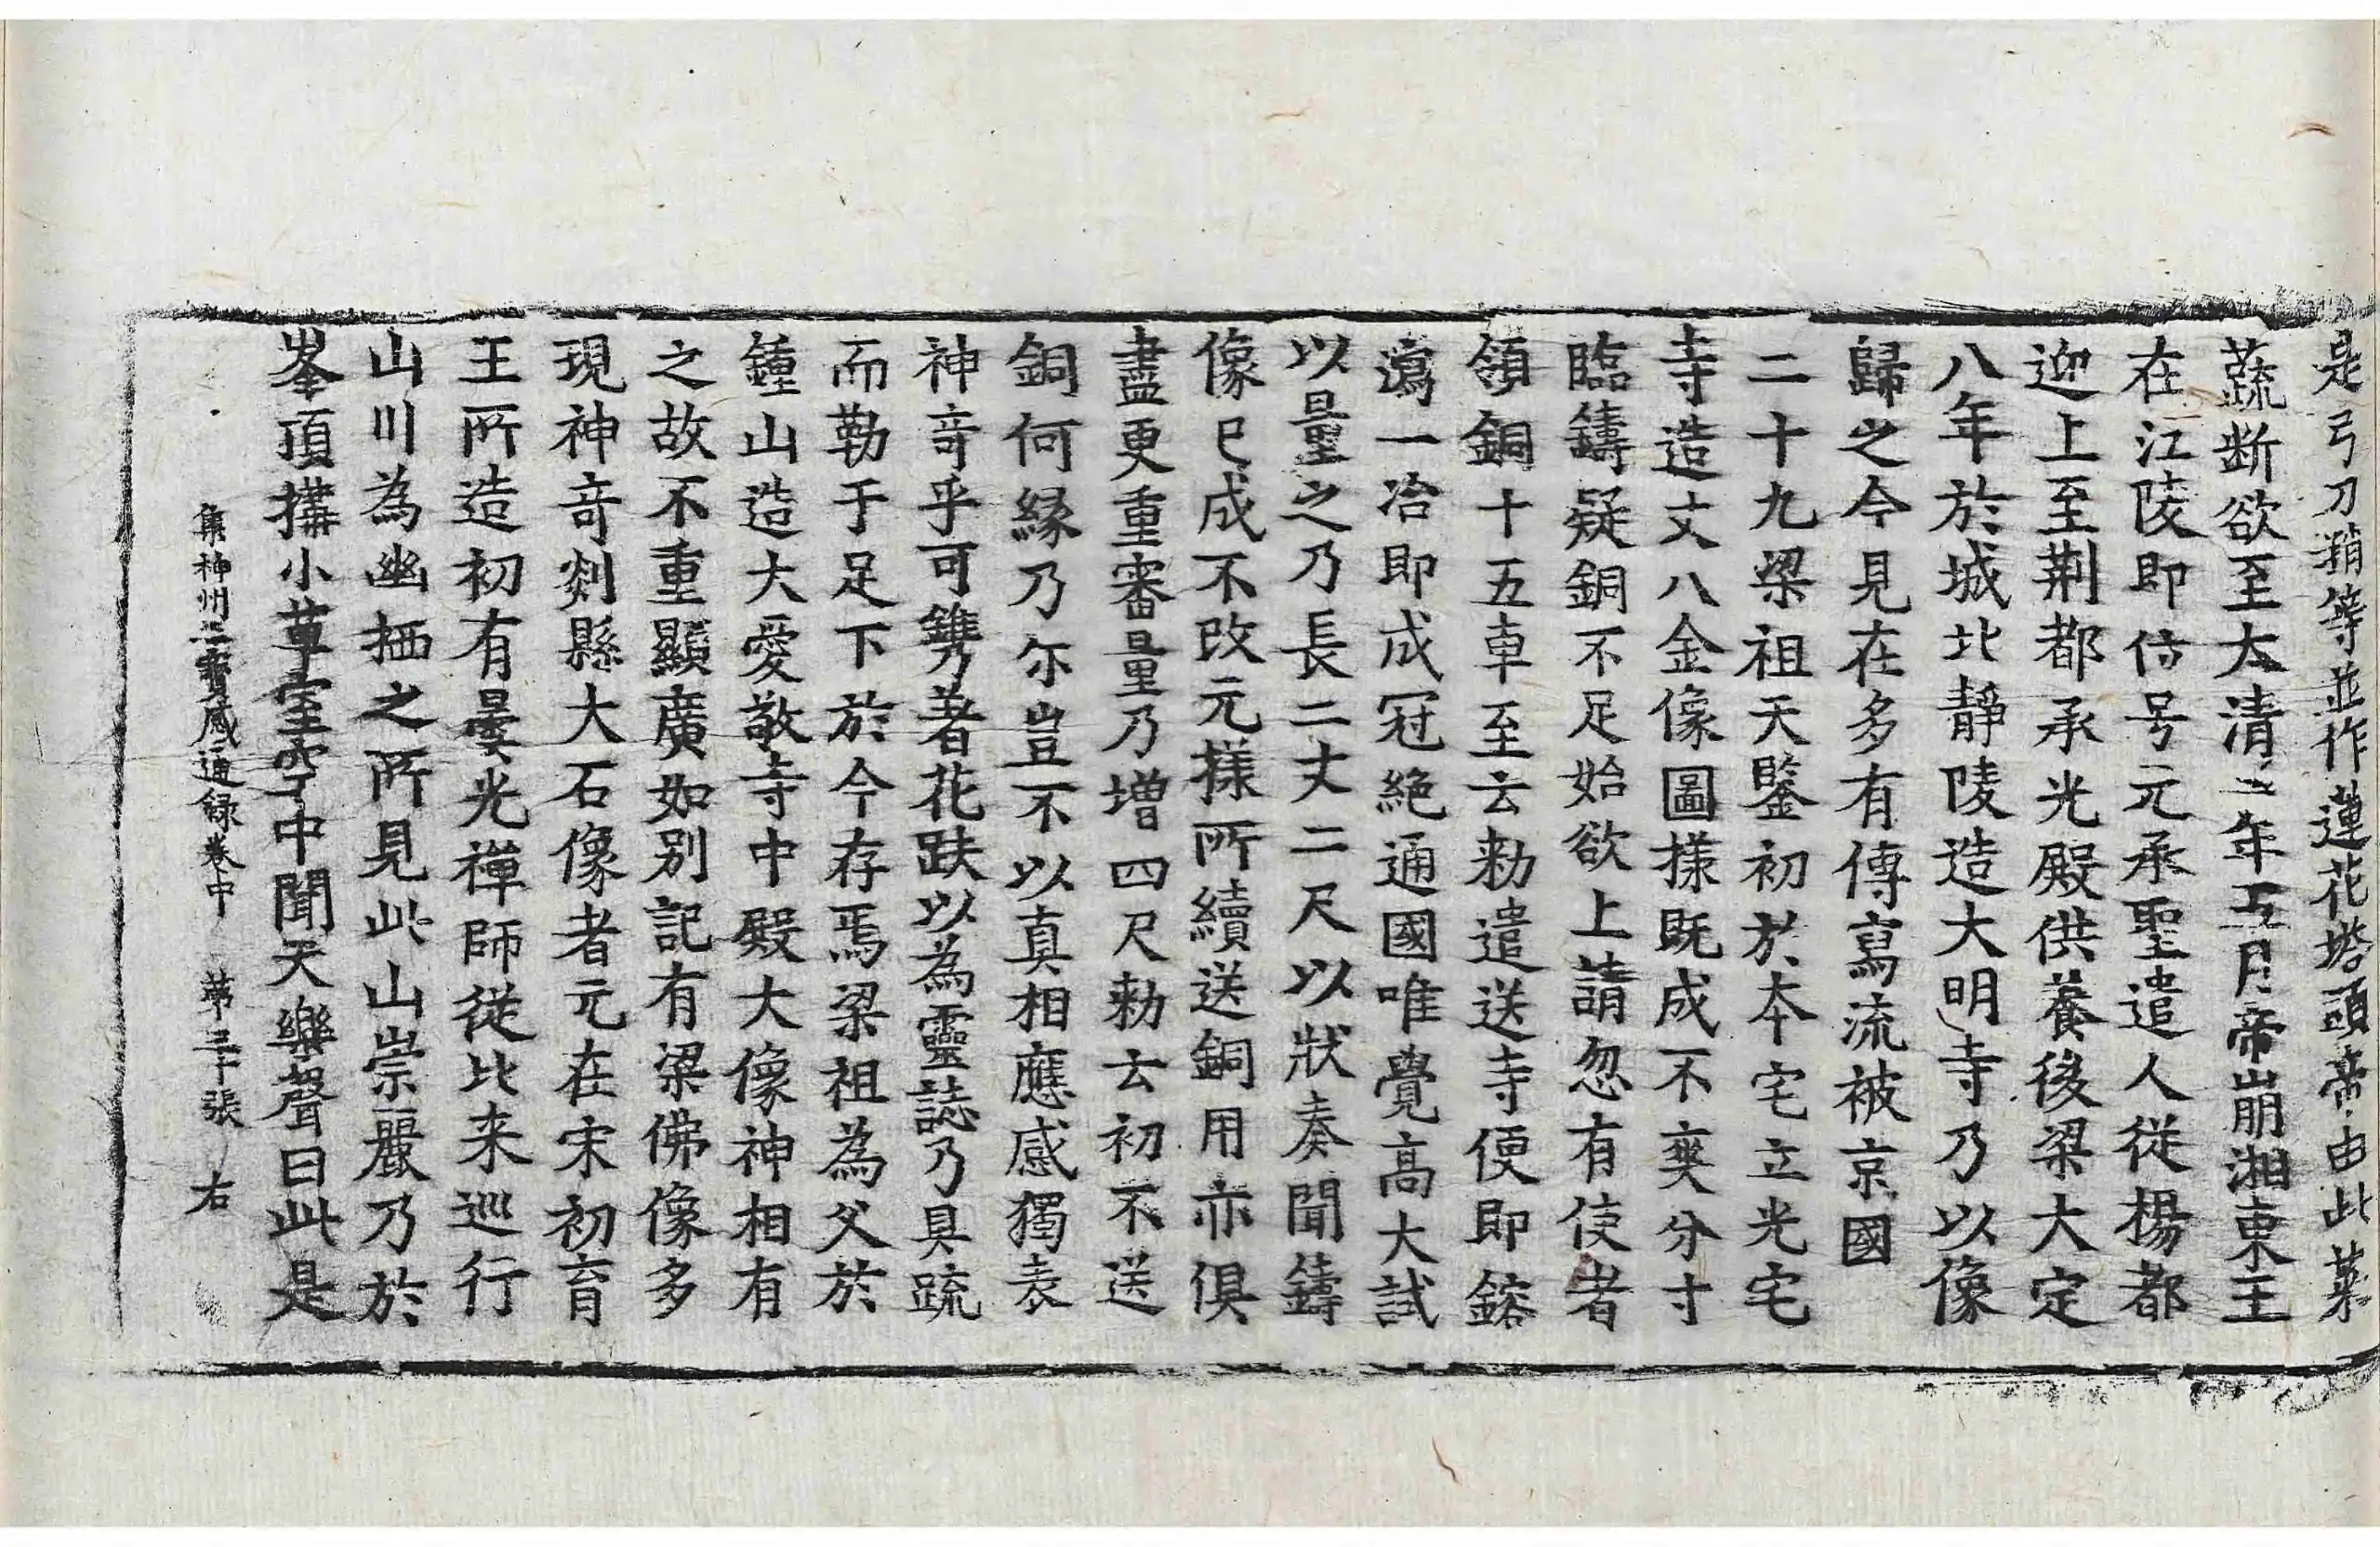 是弓刀矟等並作蓮花塔頭帝由此菜
蔬断欲至太清二年五月帝崩湘東王
在江陵即位号元承聖遣人従楊都
迎上至荆都承光殿供養後梁大定
八年於城北静陵造大明寺乃以像
歸之今見在多有傳寫流被京國
二十九梁祖天鑒初於本宅立光宅
寺造丈八金像圖様既成不爽分寸
臨鑄疑銅不足始欲上請忽有使者
領銅十五車至云勑遣送寺便即鎔
瀉一冶即成冠絶通國唯覺高大試
以量之乃長二丈二尺以狀奏聞鑄
像已成不改元様所續送銅用亦俱
盡更重審量乃増四尺勑云初不送
銅何縁乃尓豈不以真相應感獨表
神竒乎可鐫著花趺以為靈誌乃具䟽
而勒于足下於今存焉梁祖為父於
鍾山造大愛敬寺中殿大像神相有
之故不重顯廣如别記有梁佛像多
現神竒剡縣大石像者元在宋初育
王所造初有曇光禪師従比来巡行
山川為幽栖之所見此山崇麗乃於
峯頂搆小草室空中聞天樂聲曰此是
集神州三寳感通録卷中　第三十張　右